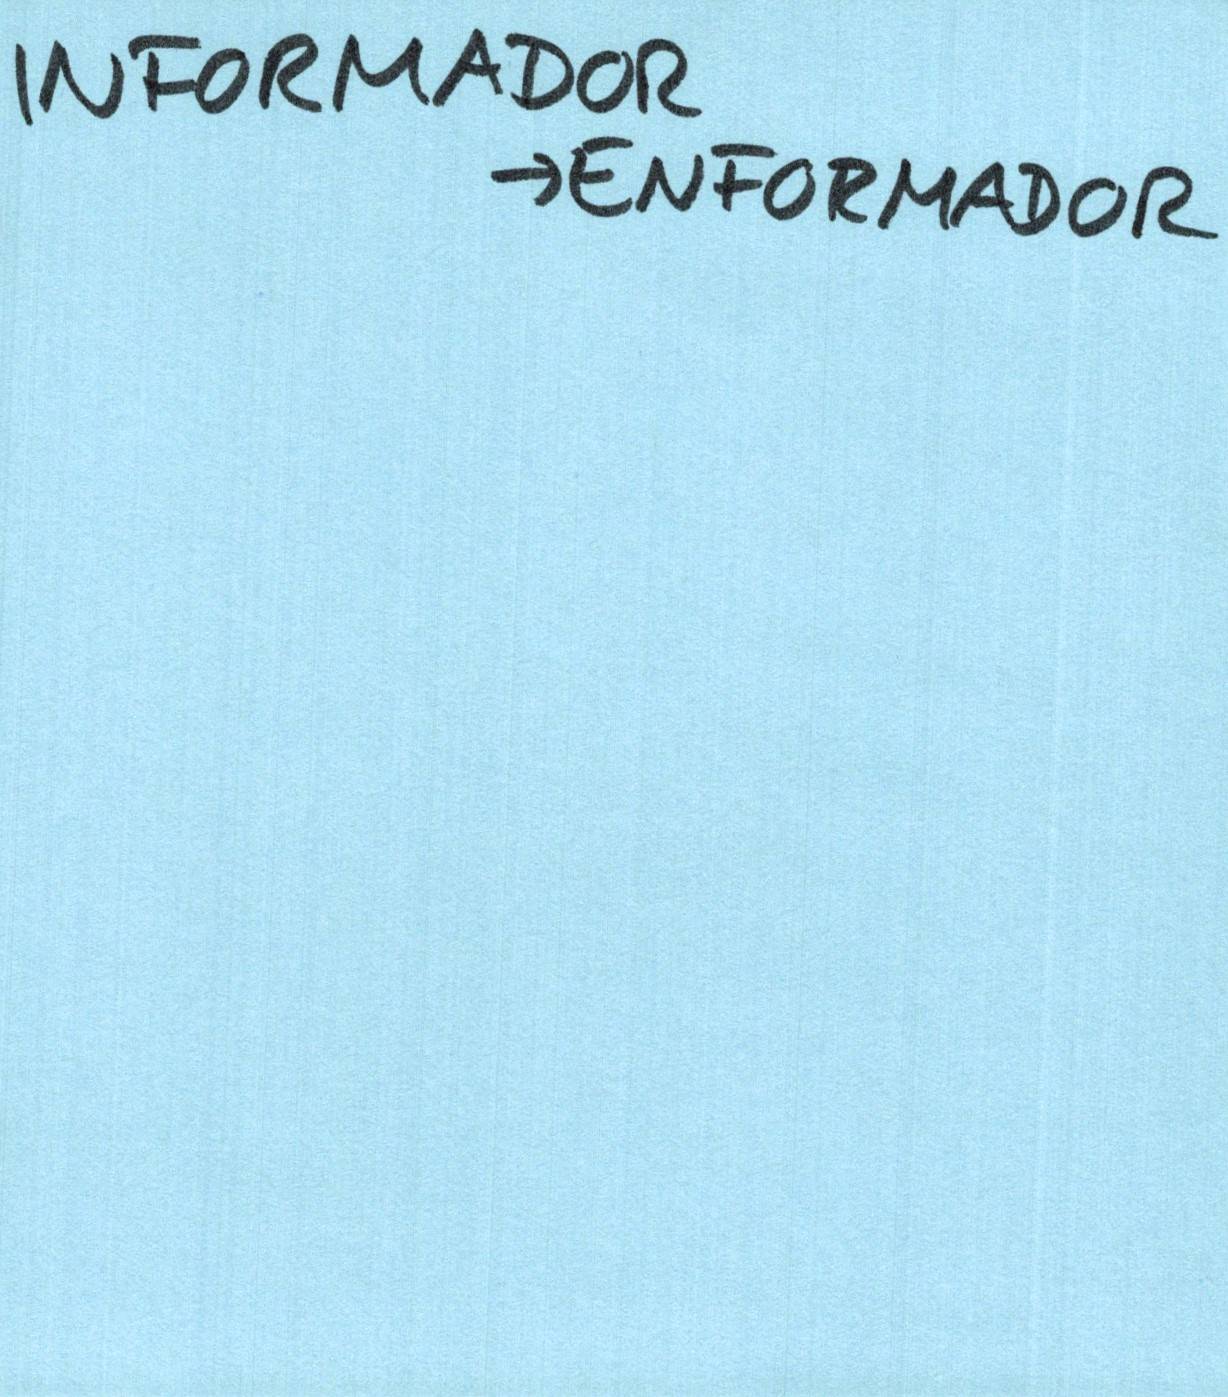 INFORMADOR
→ENFORMADOR